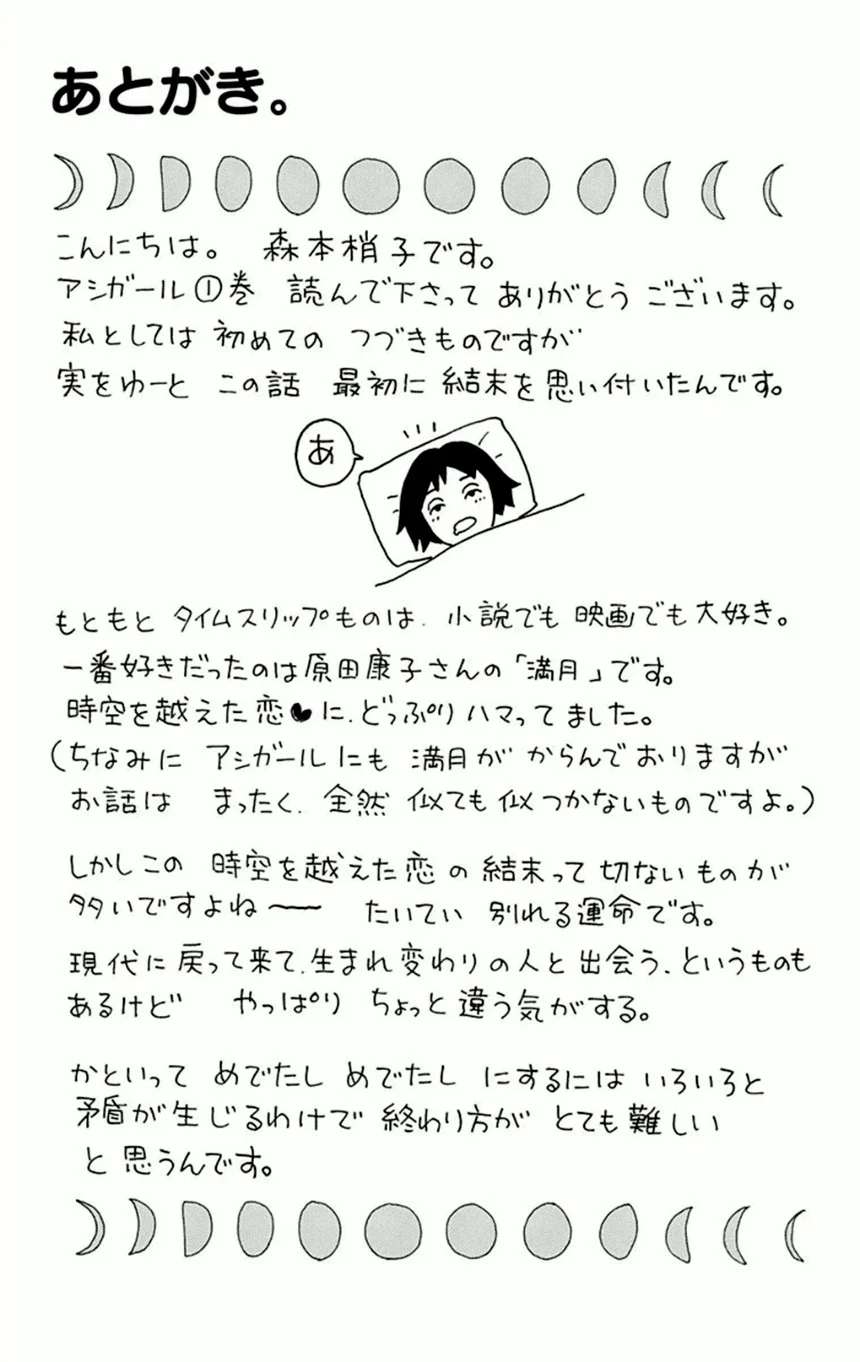 あとがき。
こんにちは。 森本梢子です。
アシガール①巻 読んで下さって ありがとう ございます。
私としては 初めての つづきものですが
実をゆーと この話 最初に 結末を思い付いたんです。
あ
もともと タイムスリップものは、小説でも 映画でも大好き。
一番好きだったのは原田康子さんの「満月」です。
時空を越えた恋♥に、どっぷりハマってました。
(ちなみに アシガールにも 満月が からんでおりますが
お話は まったく、全然 似ても似つかないものですよ。)
しかしこの 時空を越えた恋の結末って切ないものが
多いですよね〜 たいてい 別れる運命です。
現代に戻って来て、生まれ変わりの人と出会う、というものも
あるけど やっぱり ちょっと違う気がする。
かといって めでたし めでたし にするには いろいろと
矛盾が生じるわけで 終わり方が とても難しい
と思うんです。